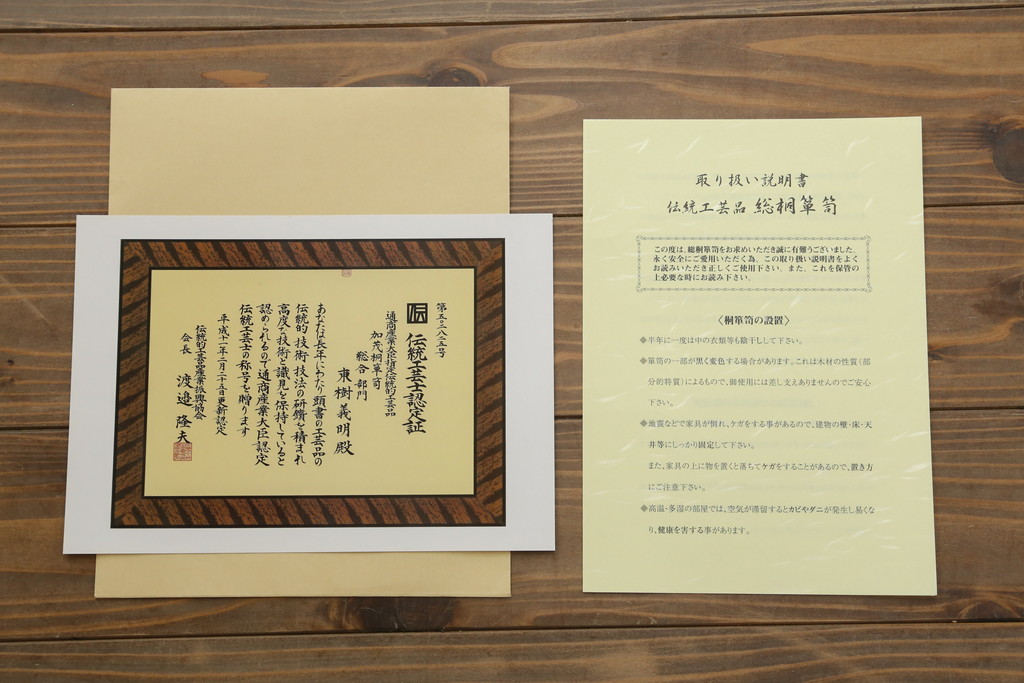 第五〇八二五号
伝統工芸士認定証
通商産業大臣指定伝統的工芸品
加茂桐箪司
総合部門
東樹義明殿
あなたは長年にわたり頭書の工芸品の
伝統的技術・技法の研鑽を積まれ
高度な技術と識見を保持していると
認められるので通商産業大臣認定
伝統工芸士の称号を贈ります
平成十一年二月二十五日更新認定
伝統的工芸品産業振興協会
会長 渡邉隆夫
取り扱い説明書
伝統工芸品 総桐箪笥
この度は、総桐箪笥をお求めいただき誠に有難うございました。
永く安全にご愛用いただく為、この取り扱い説明書をよく
お読みいただき正しくご使用下さい。また、これを保管の
上必要な時にお読み下さい。
〈桐箪笥の設置〉
◆半年に一度は中の衣類等も陰干しして下さい。
◆箪笥の一部が黒く変色する場合があります。これは木材の性質(部
分的特質)によるもので、御使用には差し支えありませんのでご安心
下さい。
◆地震などで家具が倒れ、ケガをする事があるので、建物の壁・床・天
井等にしっかり固定して下さい。
また、家具の上に物を置くと落ちてケガをすることがあるので、置き方
にご注意下さい。
◆高温・多湿の部屋では、空気が滞留するとカビやダニが発生し易くな
り、健康を害する事があります。